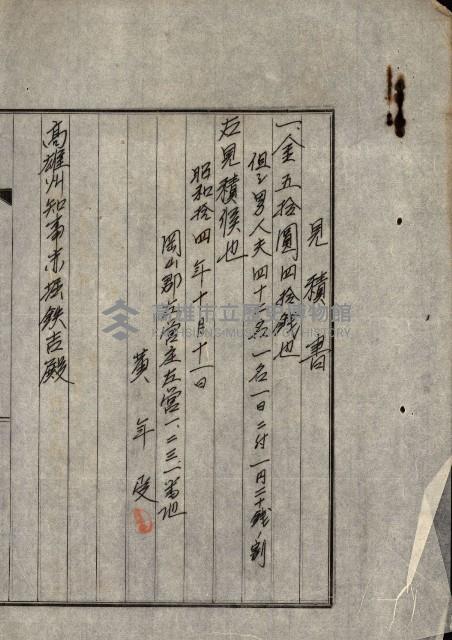 見積書
一、金五拾圓四拾錢也
但シ男人夫四十二名一名一日ニ付一円二十錢ノ割
右見積候也
昭和拾四年十月十一日
岡山郡左營庄左營一、二三一番地
黃年受
高雄州知事赤堀鉄吉殿
高雄市立歷史博物館
KAOHSIUNG MUSEUM OF HISTORY